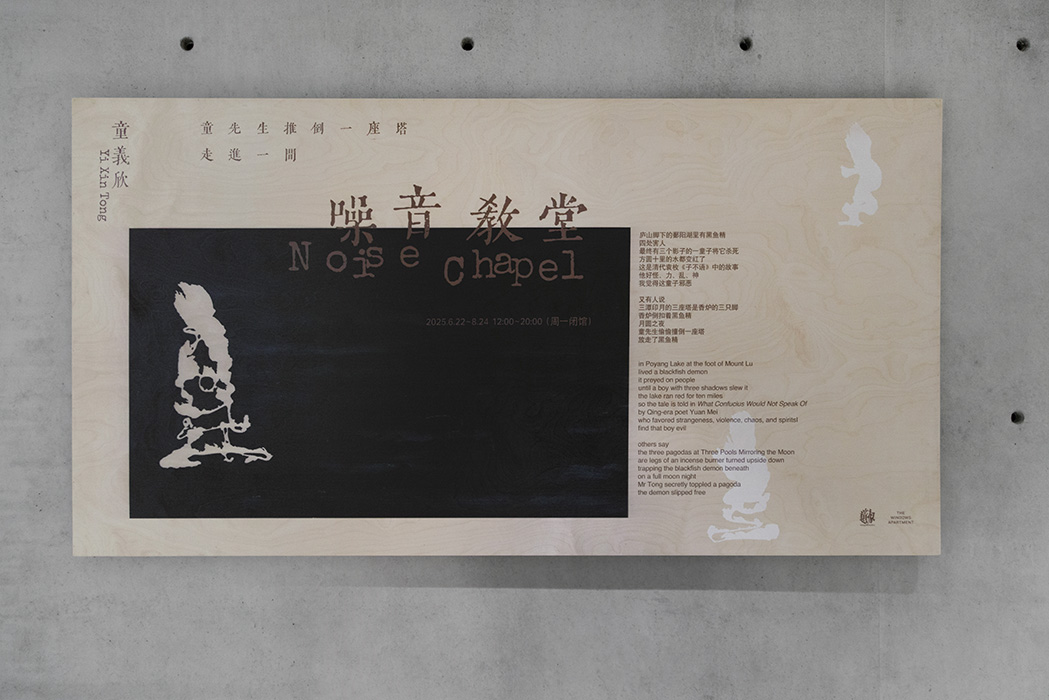 童義欣
Yi Xin Tong
童先生推倒一座塔
走進一間
噪音教堂
Noise Chapel
2025.6.22-8.24 12:00-20:00 (周一闭馆)
庐山脚下的鄱阳湖里有黑鱼精
四处害人
最终有三个影子的一童子将它杀死
方圆十里的水都变红了
这是清代袁枚《子不语》中的故事
他好怪、力、乱、神
我觉得这童子邪恶
又有人说
三潭印月的三座塔是香炉的三只脚
香炉倒扣着黑鱼精
月圆之夜
童先生偷偷撞倒一座塔
放走了黑鱼精
in Poyang Lake at the foot of Mount Lu
lived a blackfish demon
it preyed on people
until a boy with three shadows slew it
the lake ran red for ten miles
so the tale is told in What Confucius Would Not Speak Of
by Qing-era poet Yuan Mei
who favored strangeness, violence, chaos, and spirits
I find that boy evil
others say
the three pagodas at Three Pools Mirroring the Moon
are legs of an incense burner turned upside down
trapping the blackfish demon beneath
on a full moon night
Mr Tong secretly toppled a pagoda
the demon slipped free
THE
APARTMENT